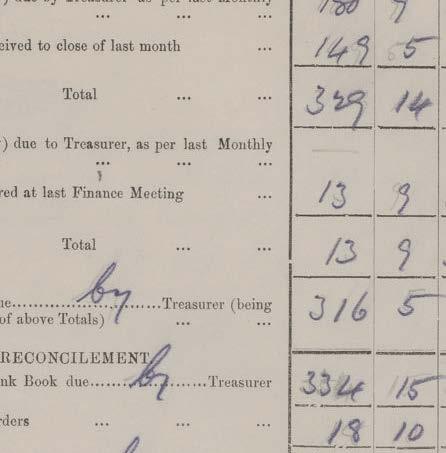 ) due by Treasurer as per last Monthly
... ... ... 180 9
eived to close of last month ... 149 5
Total ... ... 329 14
) due to Treasurer, as per last Monthly
... ... ...
red at last Finance Meeting ... 13 9
Total ... ... 13 9
ue..............by......Treasurer (being
of above Totals) ... ... 316 5
RECONCILEMENT
nk Book due.......by.......Treasurer 334 15
rders ... ... ... 18 10